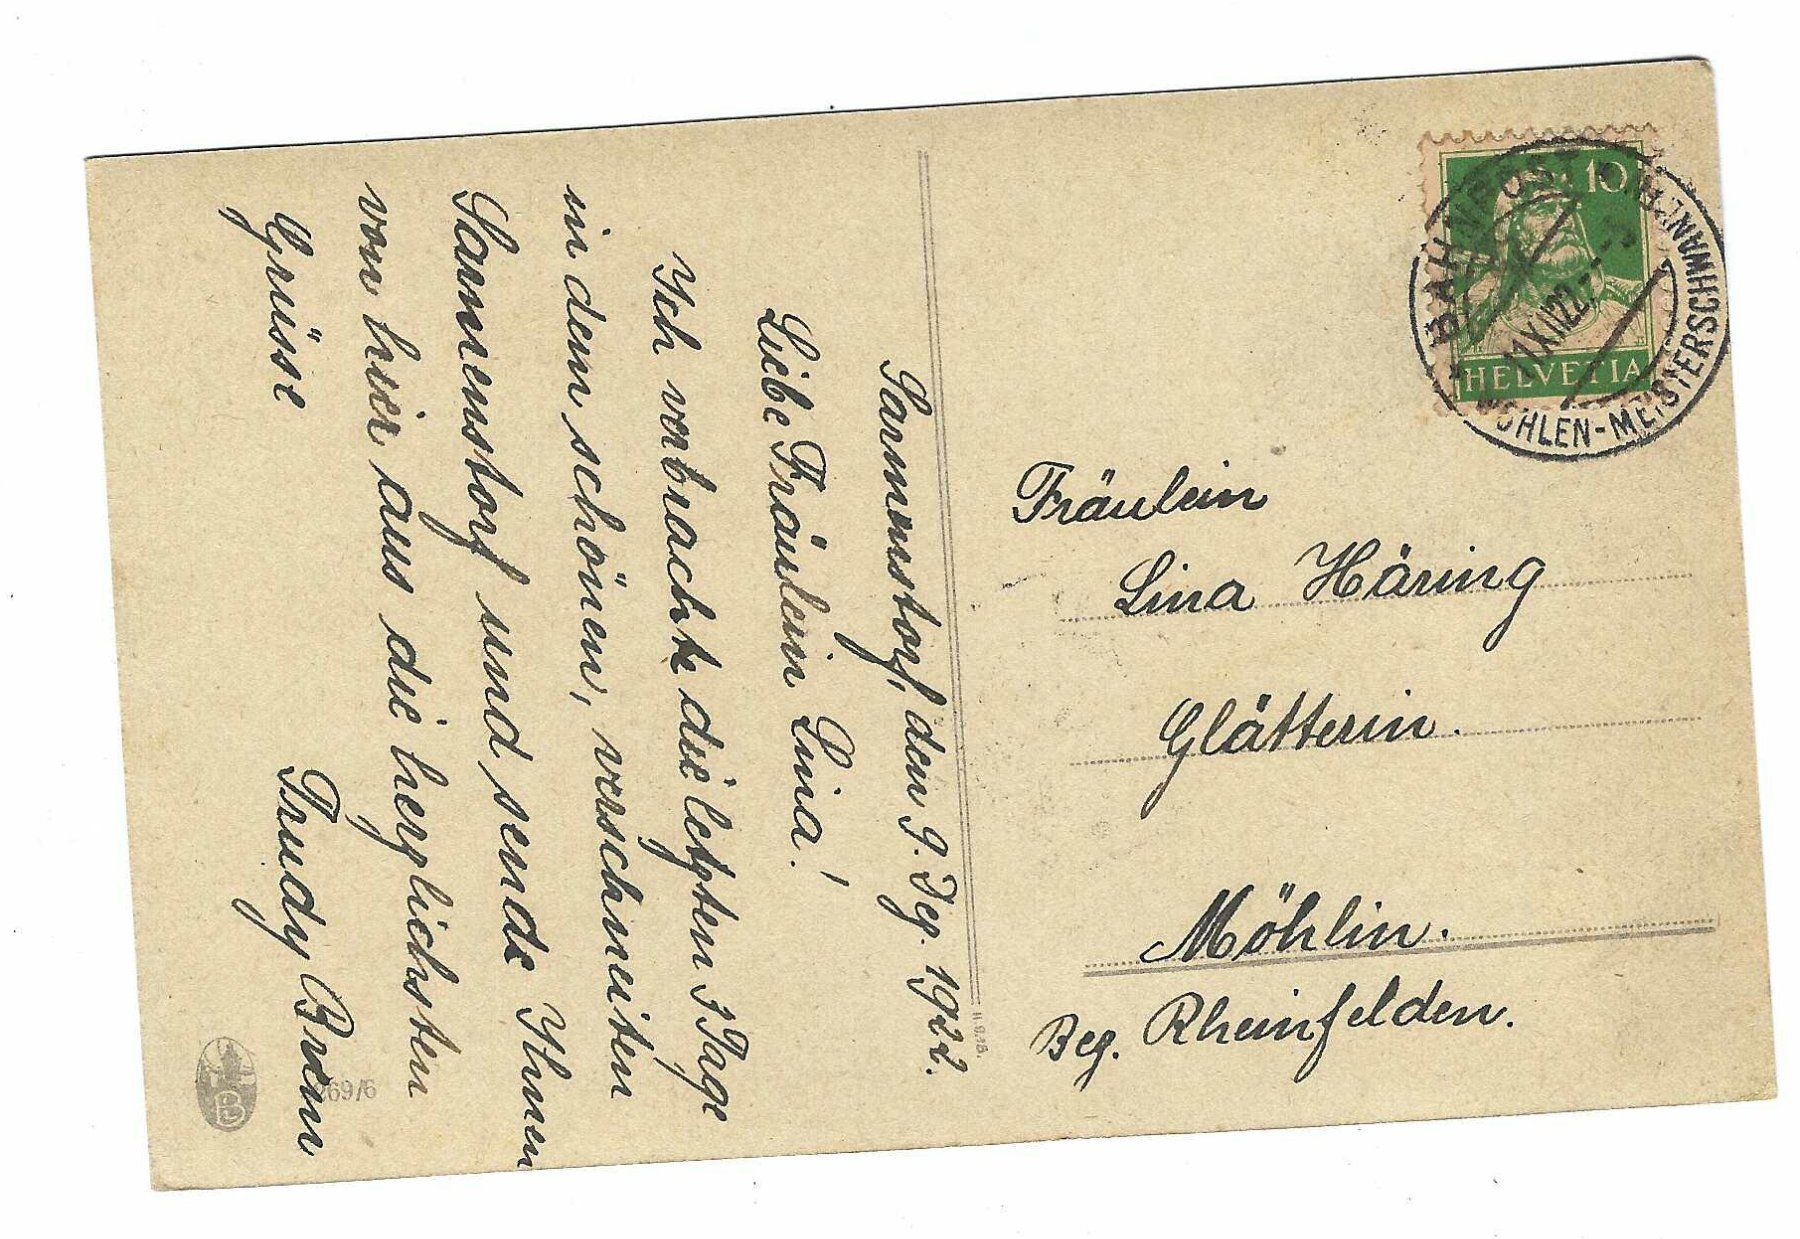 Sarmenstorf, den 9. Dez. 1922.
Liebe Fräulein Lina!
Ich verbrachte die letzten 3 Tage
in dem schönen, verschneiten
Sarmenstorf und sende Ihnen
von hier aus die herzlichsten
Grüsse
Trudy Brem
269/6
HELVETIA
10
BAHNPOST
11.XII.22.
WOHLEN-MEISTERSCHWANDEN
Fräulein
Lina Häring
Glätterin.
Möhlin.
Bez. Rheinfelden.